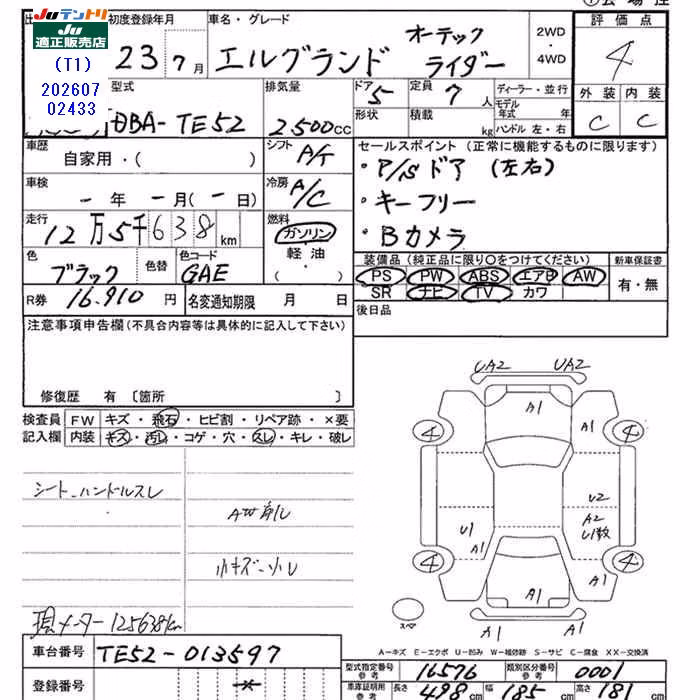 Juテントリ
JU
適正販売店
(T1)
202607
02433
初度登録年月
23 7月
車名・グレード
エルグランド オーテック
ライダー
2WD
・
4WD
評価点
4
外装 内装
C C
型式
DBA-TE52
排気量
2500cc
ドア 5
形状
定員 7人
積載 kg
ディーラー・並行
モデル年式 年
ハンドル 左・右
車歴
自家用・( )
シフト A/T
セールスポイント (正常に機能するものに限ります)
・P/Sドア (左右)
・キーフリー
・Bカメラ
車検
- 年 - 月(- 日)
冷房 A/C
走行
12万5千638km
燃料
ガソリン
・
軽油
・
( )
色
ブラック
色替
色コード
GAE
装備品 (純正品に限り〇をつけてください)
PS PW ABS エアB AW
SR ナビ TV カワ
新車保証書
有・無
R券 16,910円
名変通知期限 月 日
後日品
注意事項申告欄(不具合内容等は具体的に記入して下さい)
修復歴 有〔箇所 〕
検査員
記入欄
FW キズ・飛石・ヒビ割・リペア跡・×要
内装 キズ・汚レ・コゲ・穴・スレ・キレ・破レ
シート、ハンドルスレ
AW創レ
小キズ・小レ
現メーター125638km
UA2 UA2
A1
4 A1 4
U2
U1 A2
A1 U1数
4 A1 A1 4
A1
A1 A1
スペア
A-キズ E-エクボ U-凹み W-補修跡 S-サビ C-腐食 XX-交換済
車台番号 TE52-013597
登録番号
型式指定番号
参考
16576
類別区分番号
参考
0001
車庫証明用
参考
長さ 498cm 幅 185cm 高さ 181cm